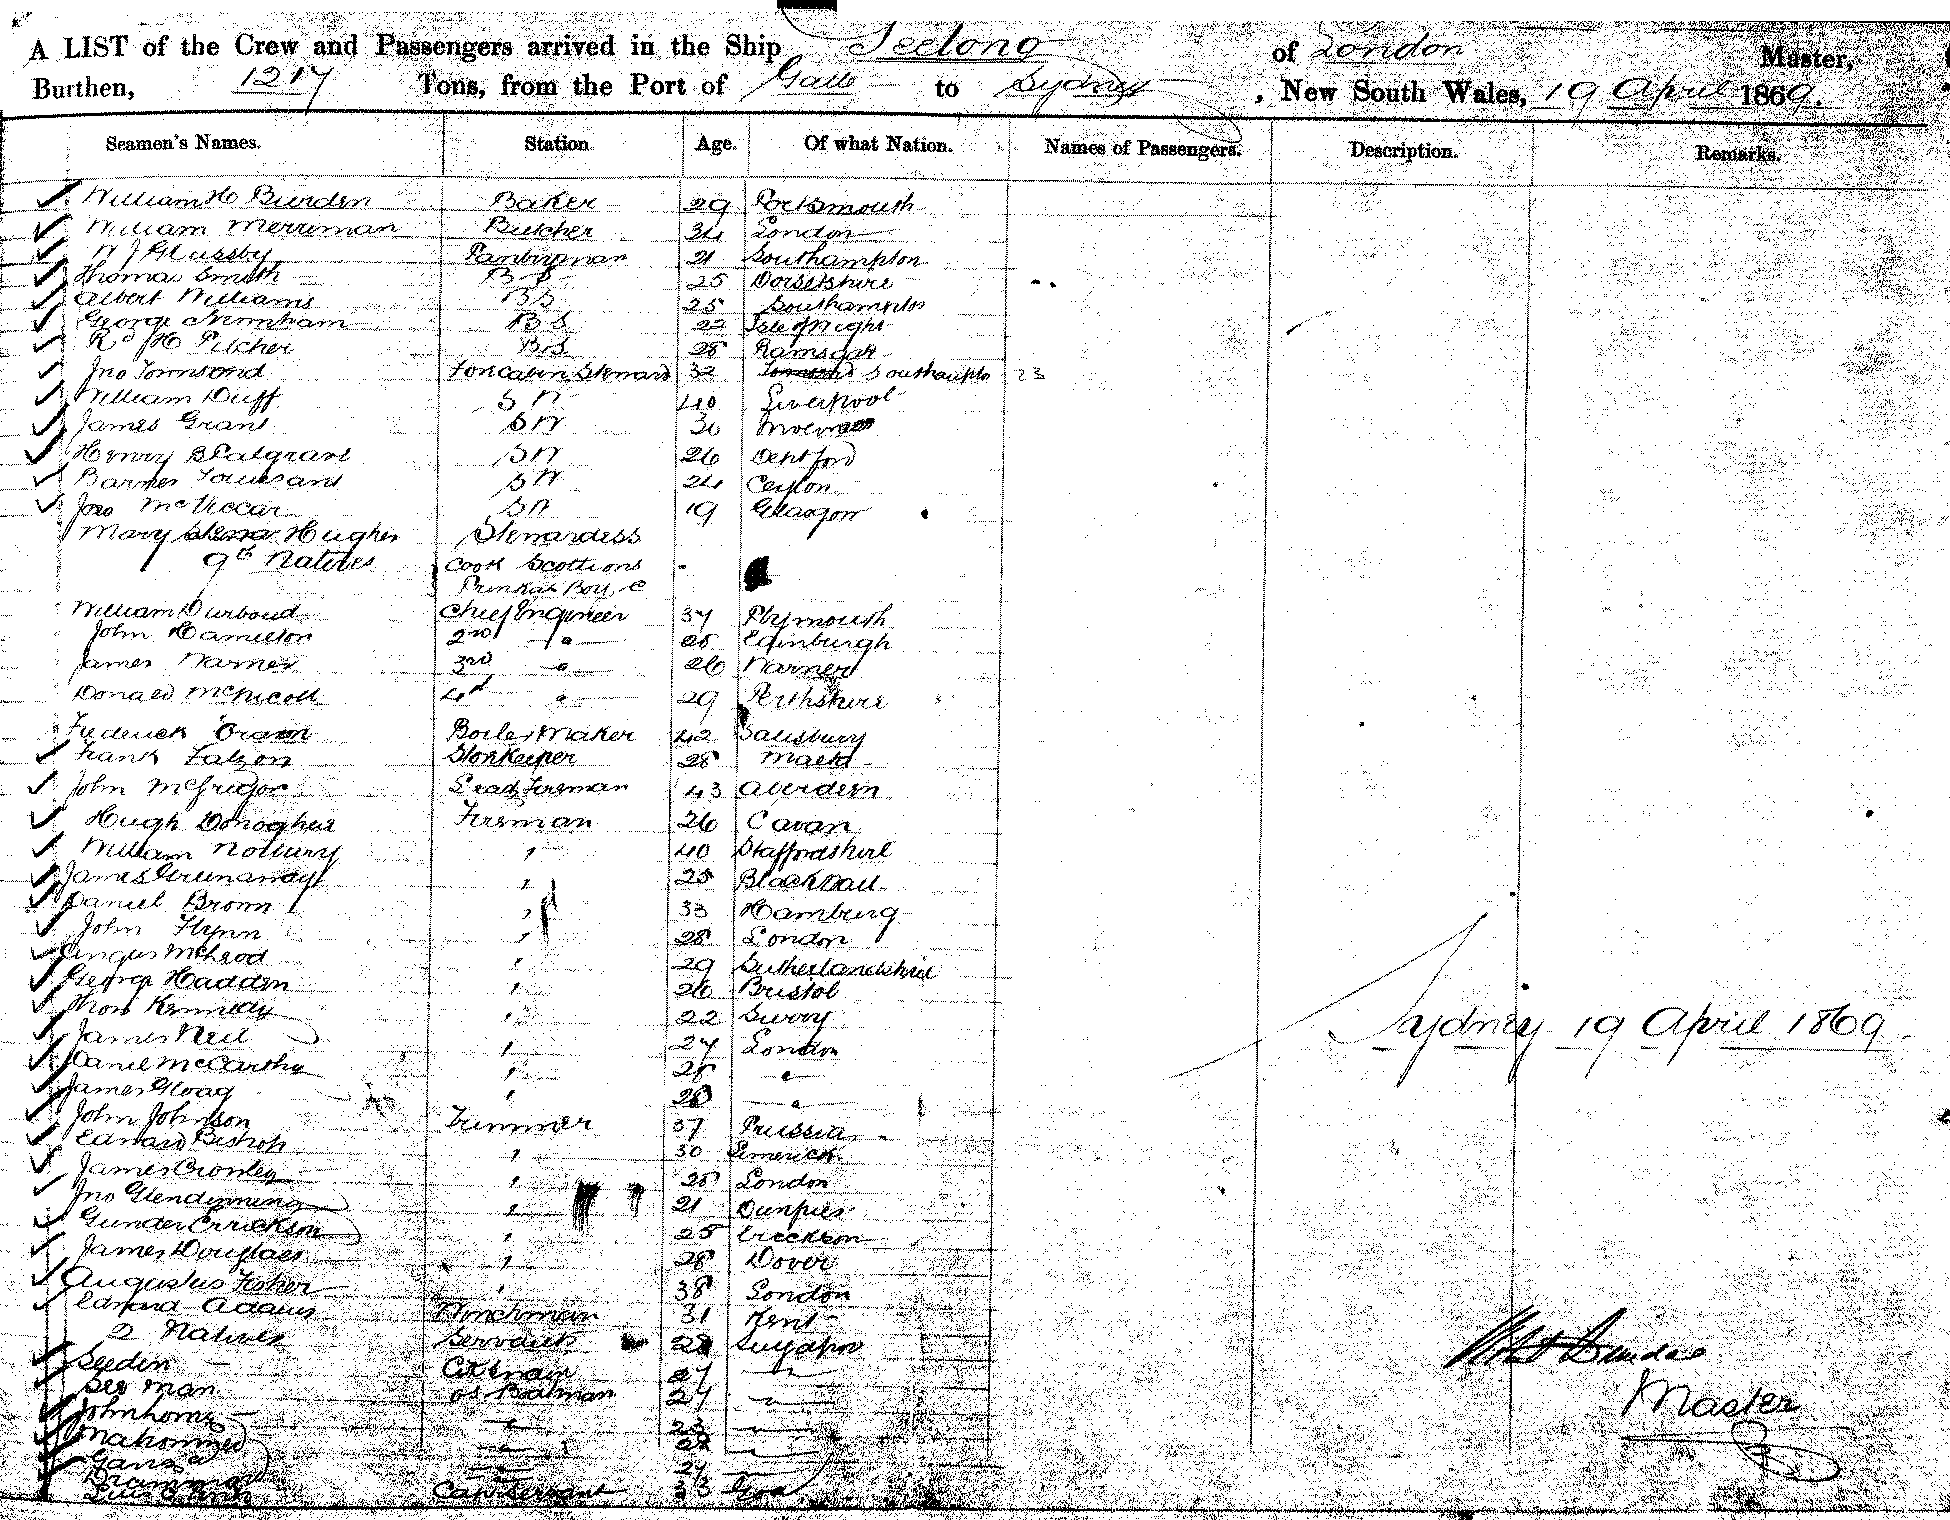 A LIST of the Crew and Passengers arrived in the Ship Geelong of London Master,
Burthen, 1217 Tons, from the Port of Galle to Sydney, New South Wales, 19 April 1869.
Seamen's Names. Station Age. Of what Nation. Names of Passengers. Description. Remarks.
William H Burden Baker 29 Portsmouth
William Merriman Butcher 34 London
W J Glassby Pantryman 21 Southampton
Thomas Smith B S 25 Dorsetshire
Albert Williams B S 25 Southampton
George B S 22 Isle of Wight
Rd H Pilcher B S 28 Ramsgate
Jno Townsend Forecabin Steward 32 Southampton 23
William Duff S W 40 Liverpool
James Grant S W 30
Henry B Palgrave S W 26 Deptford
Barnes S W 24 Ceylon
Jno McVicar S W 19 Glasgow
Mary Hughes Stewardess
9 Natives Cook Scottions
Punkah Boy &c
William Durbond Chief Engineer 37 Plymouth
John Hamilton 2nd " 25 Edinburgh
James Warner 3rd " 26 Warner
Donald McNicoll 4th " 29 Perthshire
Frederick Boiler Maker 42 Salisbury
Frank Falzon Storekeeper 28 Malta
John McGregor Lead Fireman 43 Aberdeen
Hugh Donoghue Fireman 26 Cavan
William Norbury " 40 Staffordshire
James Greenaway " 25 Blackwall
Daniel Brown " 33 Hamburg
John Flynn " 28 London
Angus McLeod " 29 Sutherlandshire
George Hadden " 26 Bristol
Thos Kennedy " 22 Surry
James Neil " 27 London
Sydney 19 April 1869
Daniel McCarthy " 28 "
James Hoag " 28 "
John Johnson Trimmer 37 Prussia
Edward Bishop " 30 Limerick
James Crowley " 28 London
Jno Glendinning " 21 Dumfries
Gunder Errickson " 25 Erickson
James Douglass " 28 Dover
Augustus Fisher " 38 London
Edward Adams Winchman 31 Kent
2 Natives Servants 28
Seedin 27 "
See man as Boatman 27 "
" 23 "
Mahommed " 22 "
" 24 "
Servant 33 Goa
Robt Dundas
Master